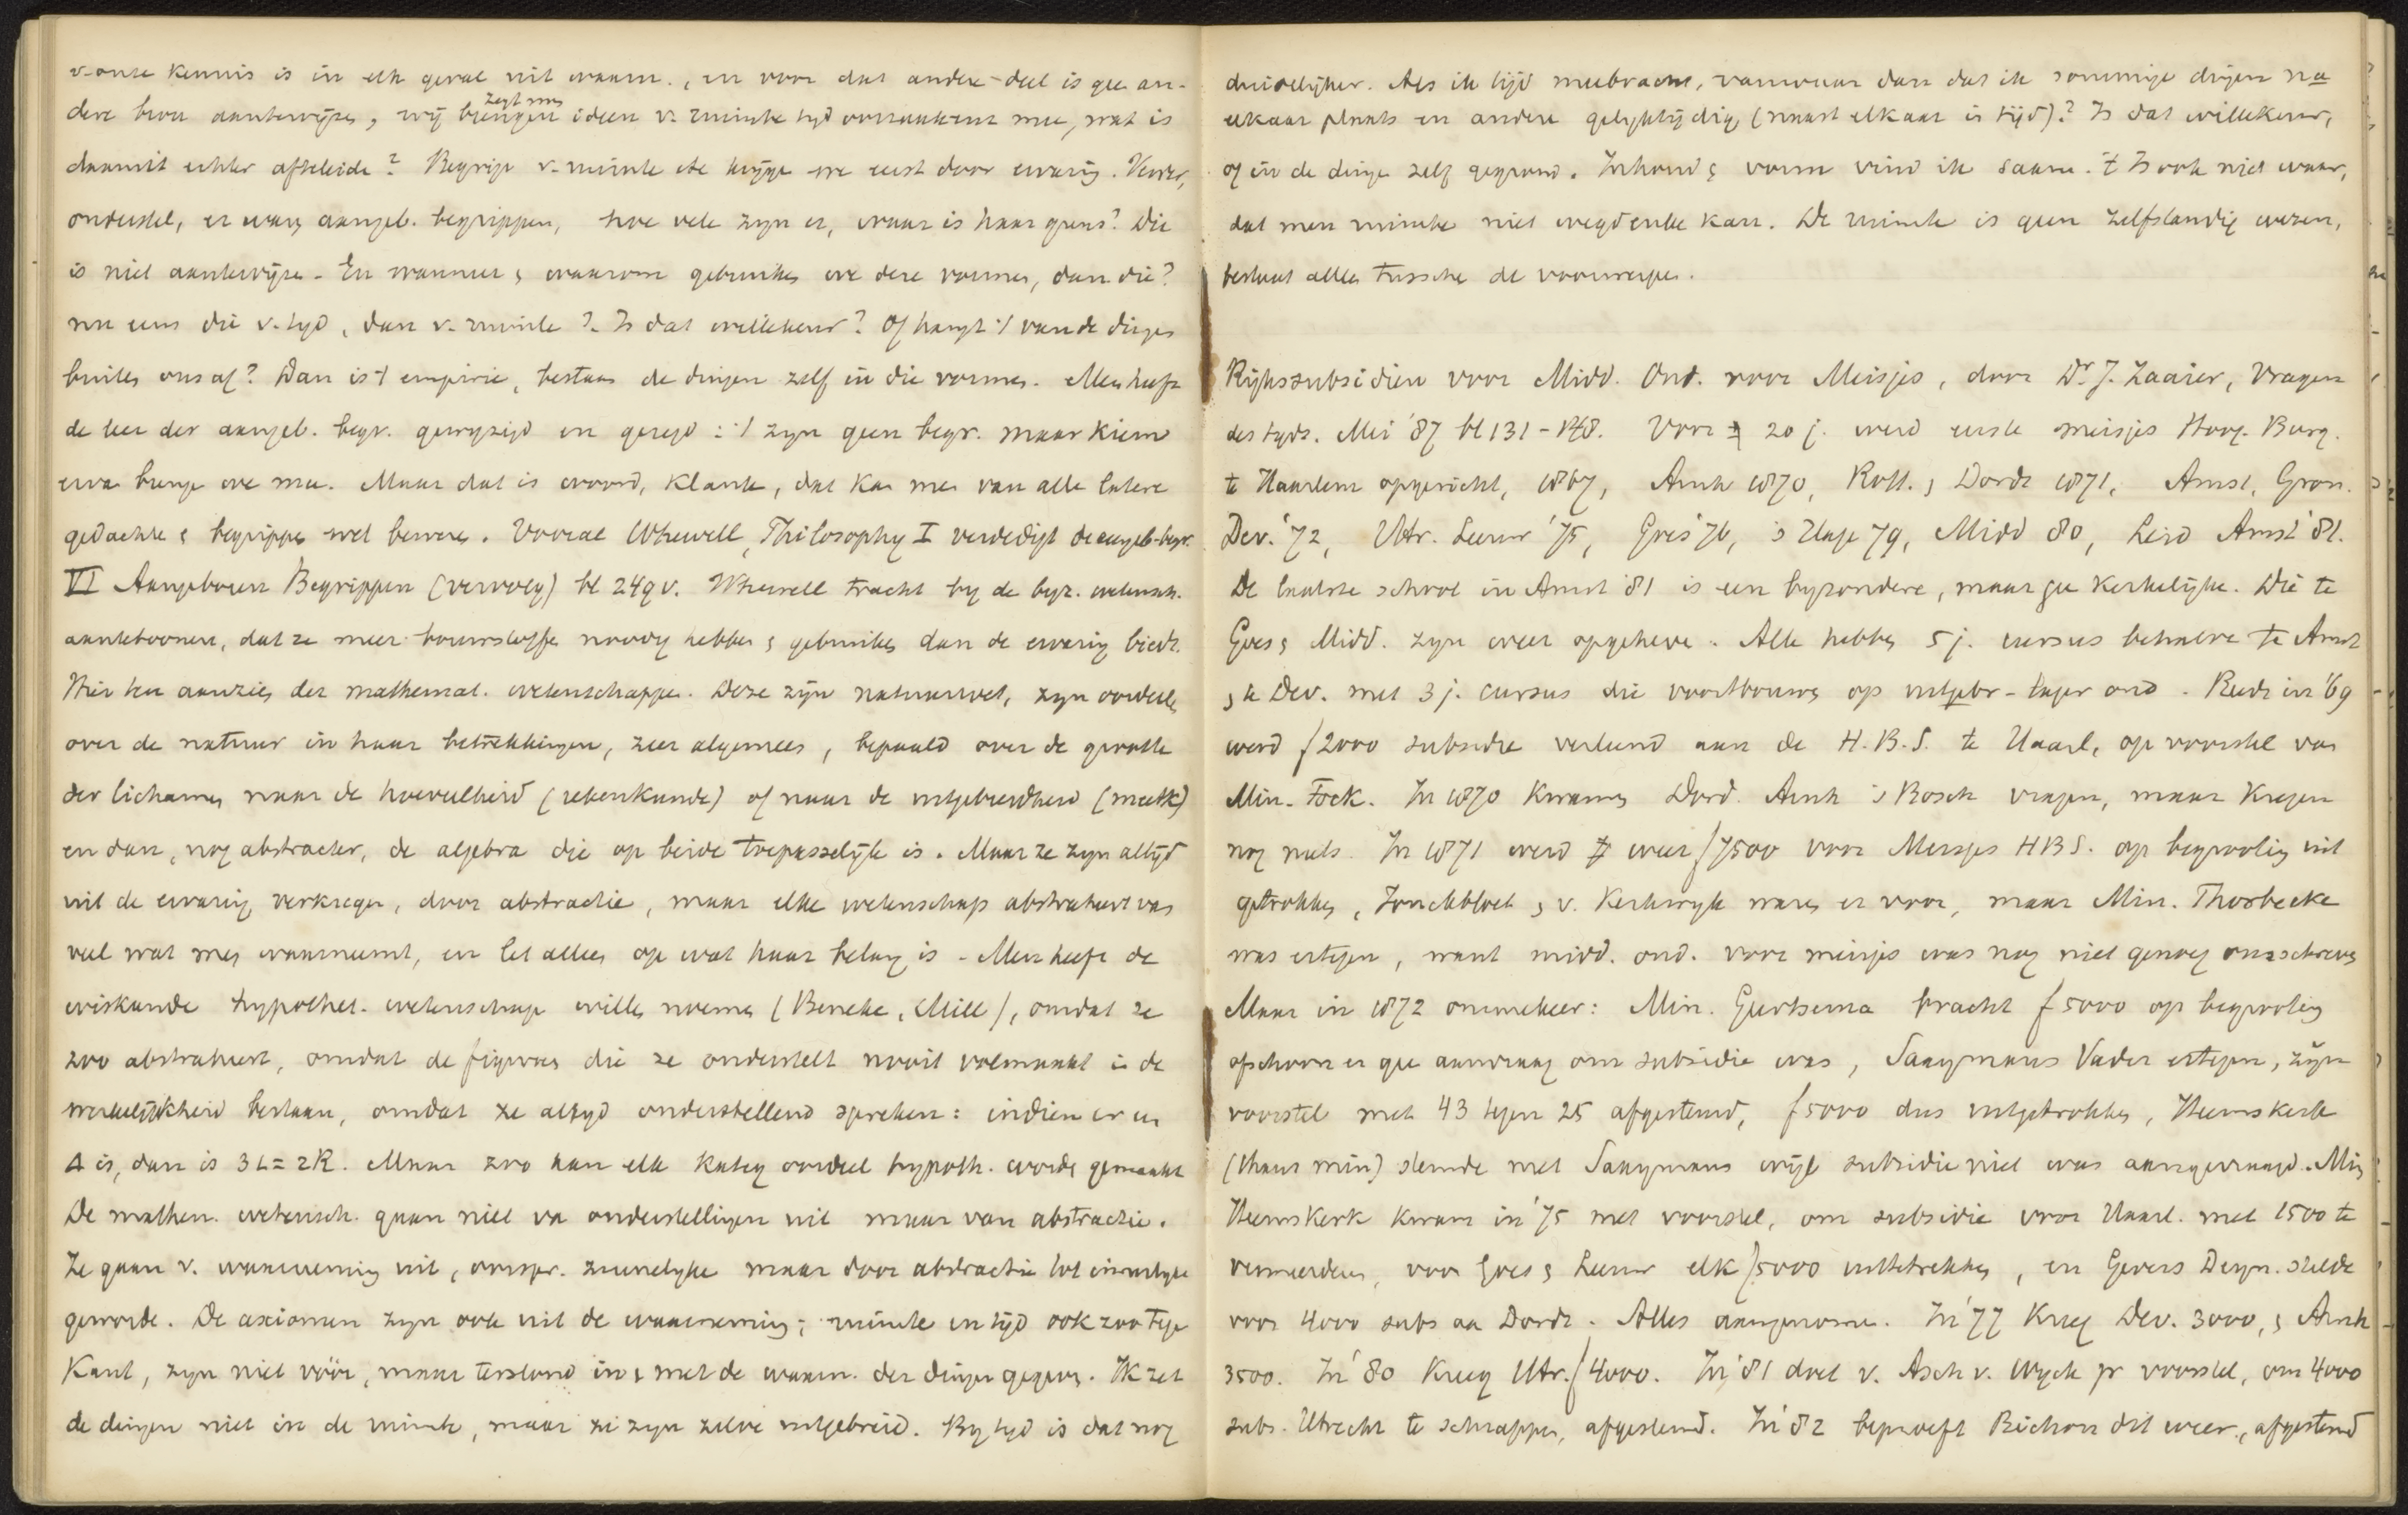 v. onze kennis is in elk geval uit waarn., en voor dat andere deel is gee an-
dere bron aantewijze, wij brengen zegt men ideen v. ruimte tijd oorzaak enz mee, wat is
daaruit echter afteleide? Begrip v. ruimte etc krijge we eerst door ervarig. Verder,
onderstel, er ware aangeb. begrippen, hoe vele zijn er, waar is haar grens? Die
is niet aantewijze. En wanneer & waarom gebruiken we deze vormen, dan die?
nu eens die v. tijd, dan v. ruimte? Is dat willekeur? Of hangt 't van de dinge
buiten ons af? Dan is 't empirie, bestaan de dingen zelf in die vormen. Men heeft
de leer der aangeb. begr. gewijzigd en gezegd: 't zijn geen begr. maar kiem
erva brenge we mee. Maar dat is woord, klank, dat kan men van alle latere
gedachte & begrippe wel bewere. Vooral Whewell, Philosophy I verdedigt de aangeb. begr.
VI Aangeboren Begrippen (vervolg) bl 249 v. Whewell tracht by de byz. wetensch.
aantetoonen, dat ze meer bouwstoffe noodig hebben & gebruiken dan de ervarig biedt.
Hier ten aanzien der mathemat. wetenschappe. Deze zijn natuurwet, zijn oordeele
over de natuur in haar betrekkingen, zeer algemeen, bepaald over de grootte
der lichamen naar de hoeveelheid (rekenkunde) of naar de uitgebreidheid (meetk)
en dan, nog abstracter, de algebra die op beide toepasselijk is. Maar ze zijn altijd
uit de ervarig verkregen, door abstractie, maar elke wetenschap abstraheert van
veel wat men waarneemt, en let alleen op wat haar belang is. Men heeft de
wiskunde hypothet. wetenschap wille noemen (Beneke, Mill), omdat ze
zoo abstraheert, omdat de figuren die ze onderstelt nooit volmaakt in de
werkelijkheid bestaan, omdat ze altijd onderstellend spreken: indien er een
Δ is, dan is 3 L = 2R. Maar zoo kan elk kateg oordeel hypoth. worde gemaakt
De mathem. wetensch. gaan niet va onderstellingen uit maar van abstractie.
Ze gaan v. waarneming uit, oorspr. zinnelijke maar door abstractie tot innerlyke
geworde. De axiomen zijn ook uit de waarneming; ruimte en tijd ook zoo tege
Kant, zijn niet vóór, maar terstond in & met de waarn. der dingen gegeven. Ik zet
de dingen niet in de ruimte, maar ze zijn zelve uitgebreid. By tijd is dat nog
duidelijker. Als ik tijd meebracht, vanwaar dan dat ik sommige dingen na
elkaar plaats en andere gelijktijdig (naast elkaar in tijd)? Is dat willekeur,
of in de dinge zelf gegrond. Inhoud & vorm vind ik saam. 't Is ook niet waar,
dat men ruimte niet wegdenke kan. De ruimte is geen zelfstandig wezen,
bestaat alleen tussche de voorwerpe.
Rijkssubsidien voor Midd. Ond. voor Meisjes, door Dr J. Zaaier, Vragen
des tijds. Mei '87 bl 131 - 148. Voor 20 j. werd eerste meisjes Hoog. Burg.
te Haarlem opgericht, 1867, Arnh 1870, Rott. & Dordt 1871, Amst, Gron.
Dev. '72, Utr. Leeuw '75, Goes '76, 's Hage 79, Midd 80, Leid Amst '81.
De laatste school in Amst '81 is een byzondere, maar gee Kerkelijke. Die te
Goes & Midd. zijn weer opgeheve. Alle hebben 5 j. cursus behalve te Amst
& te Dev. met 3 j. cursus die voortbouwe op uitgebr. lager ond. Reeds in '69
werd ƒ2000 subsidie verleend aan de H.B.S. te Haarl, op voorstel van
Min. Fock. In 1870 kwamen Dord. Arnh 's Bosch vragen, maar kregen
nog niets. In 1871 werd weer ƒ7500 voor Meisjes HBS. op begrooting uit
getrokken, Jonckbloet & v. Kerkwijk waren er voor, maar Min. Thorbecke
was ertegen, want midd. ond. voor meisjes was nog niet genoeg omschreven
Maar in 1872 ommekeer: Min. Geertsema bracht ƒ5000 op begrooting
ofschoon er gee aanvraag om subsidie was, Saaymans Vader ertegen, zijn
voorstel met 43 tegen 25 afgestemd, ƒ5000 dus uitgetrokken, Heemskerk
(thans min) stemde met Saaymans wijl subsidie niet was aangevraagd. Min
Heemskerk kwam in '75 met voorstel, om subsidie voor Haarl. met 1500 te
vermeerderen, voor Goes & Leeuw elk ƒ5000 uittetrekken, en Gevers Deyn. stelde
voor 4000 subs aa Dordt. Alles aangenome. In '77 kreeg Dev. 3000, & Arnh
3500. In '80 kreeg Utr. ƒ4000. In '81 doet v. Asch v. Wyck voorstel, om 4000
subs. Utrecht te schrappe, afgestemd. In '82 beproeft Bichon dit weer, afgestemd